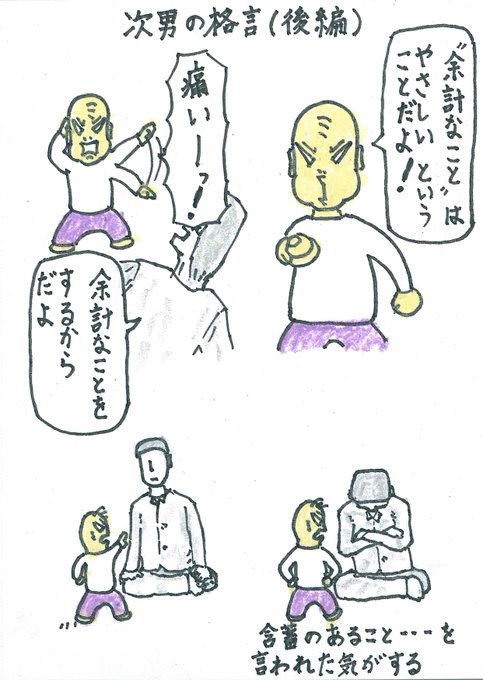 次男の格言(後編)
痛いーっ!
余計なことを
するから
だよ
"余計なこと"は
やさしい という
ことだよ!
含蓄のあること・・・を
言われた気がする